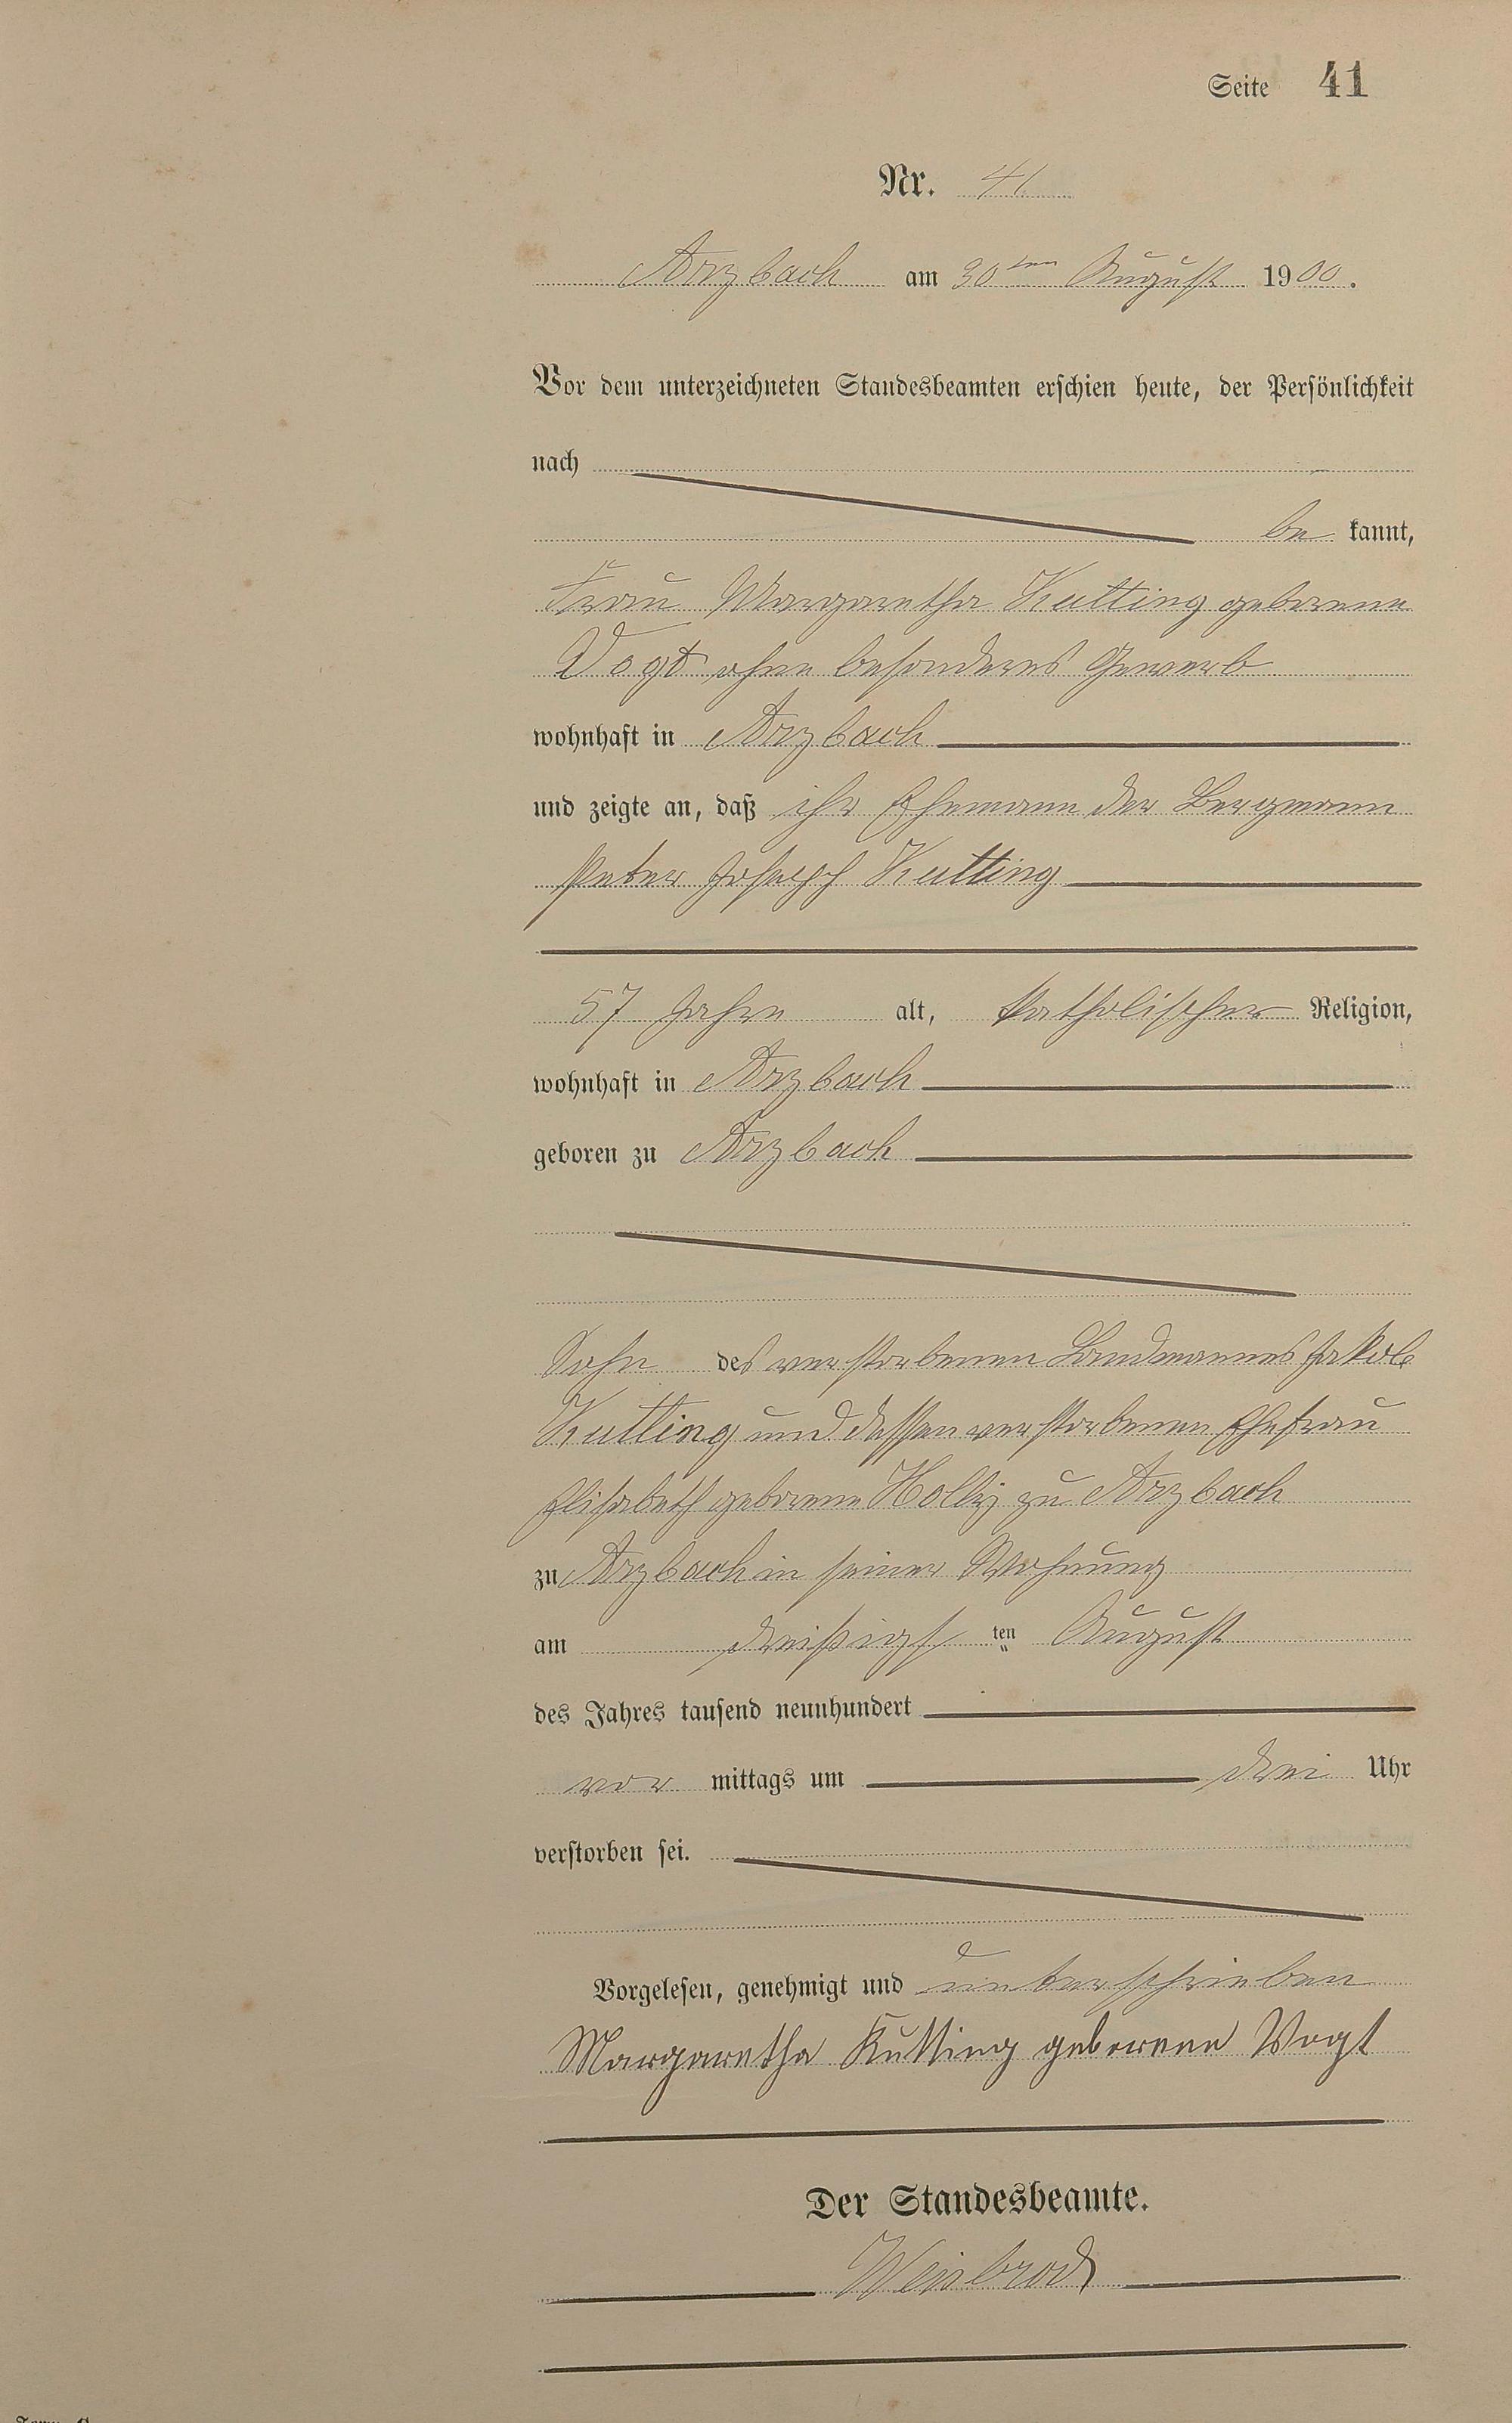 Seite 41
Nr. 41
Arzbach am 30ten August 1900.
Vor dem unterzeichneten Standesbeamten erschien heute, der Persönlichkeit
nach
be kannt,
Frau Margaretha Kutting geborene
Vogt ohne besonderes Gewerb
wohnhaft in Arzbach
und zeigte an, daß ihr Ehemann der Bergmann
Peter Joseph Kutting
57 Jahre alt, katholischer Religion,
wohnhaft in Arzbach
geboren zu Arzbach
Sohn des verstorbenen Landmannes Jakob
Kutting und dessen verstorbenen Ehefrau
Elisabeth geborene Holly zu Arzbach
zu Arzbach in seiner Wohnung
am dreißigsten August
des Jahres tausend neunhundert
vor mittags um drei Uhr
verstorben sei.
Vorgelesen, genehmigt und unterschrieben
Margaretha Kutting geborene Vogt
Der Standesbeamte.
Weisbrod